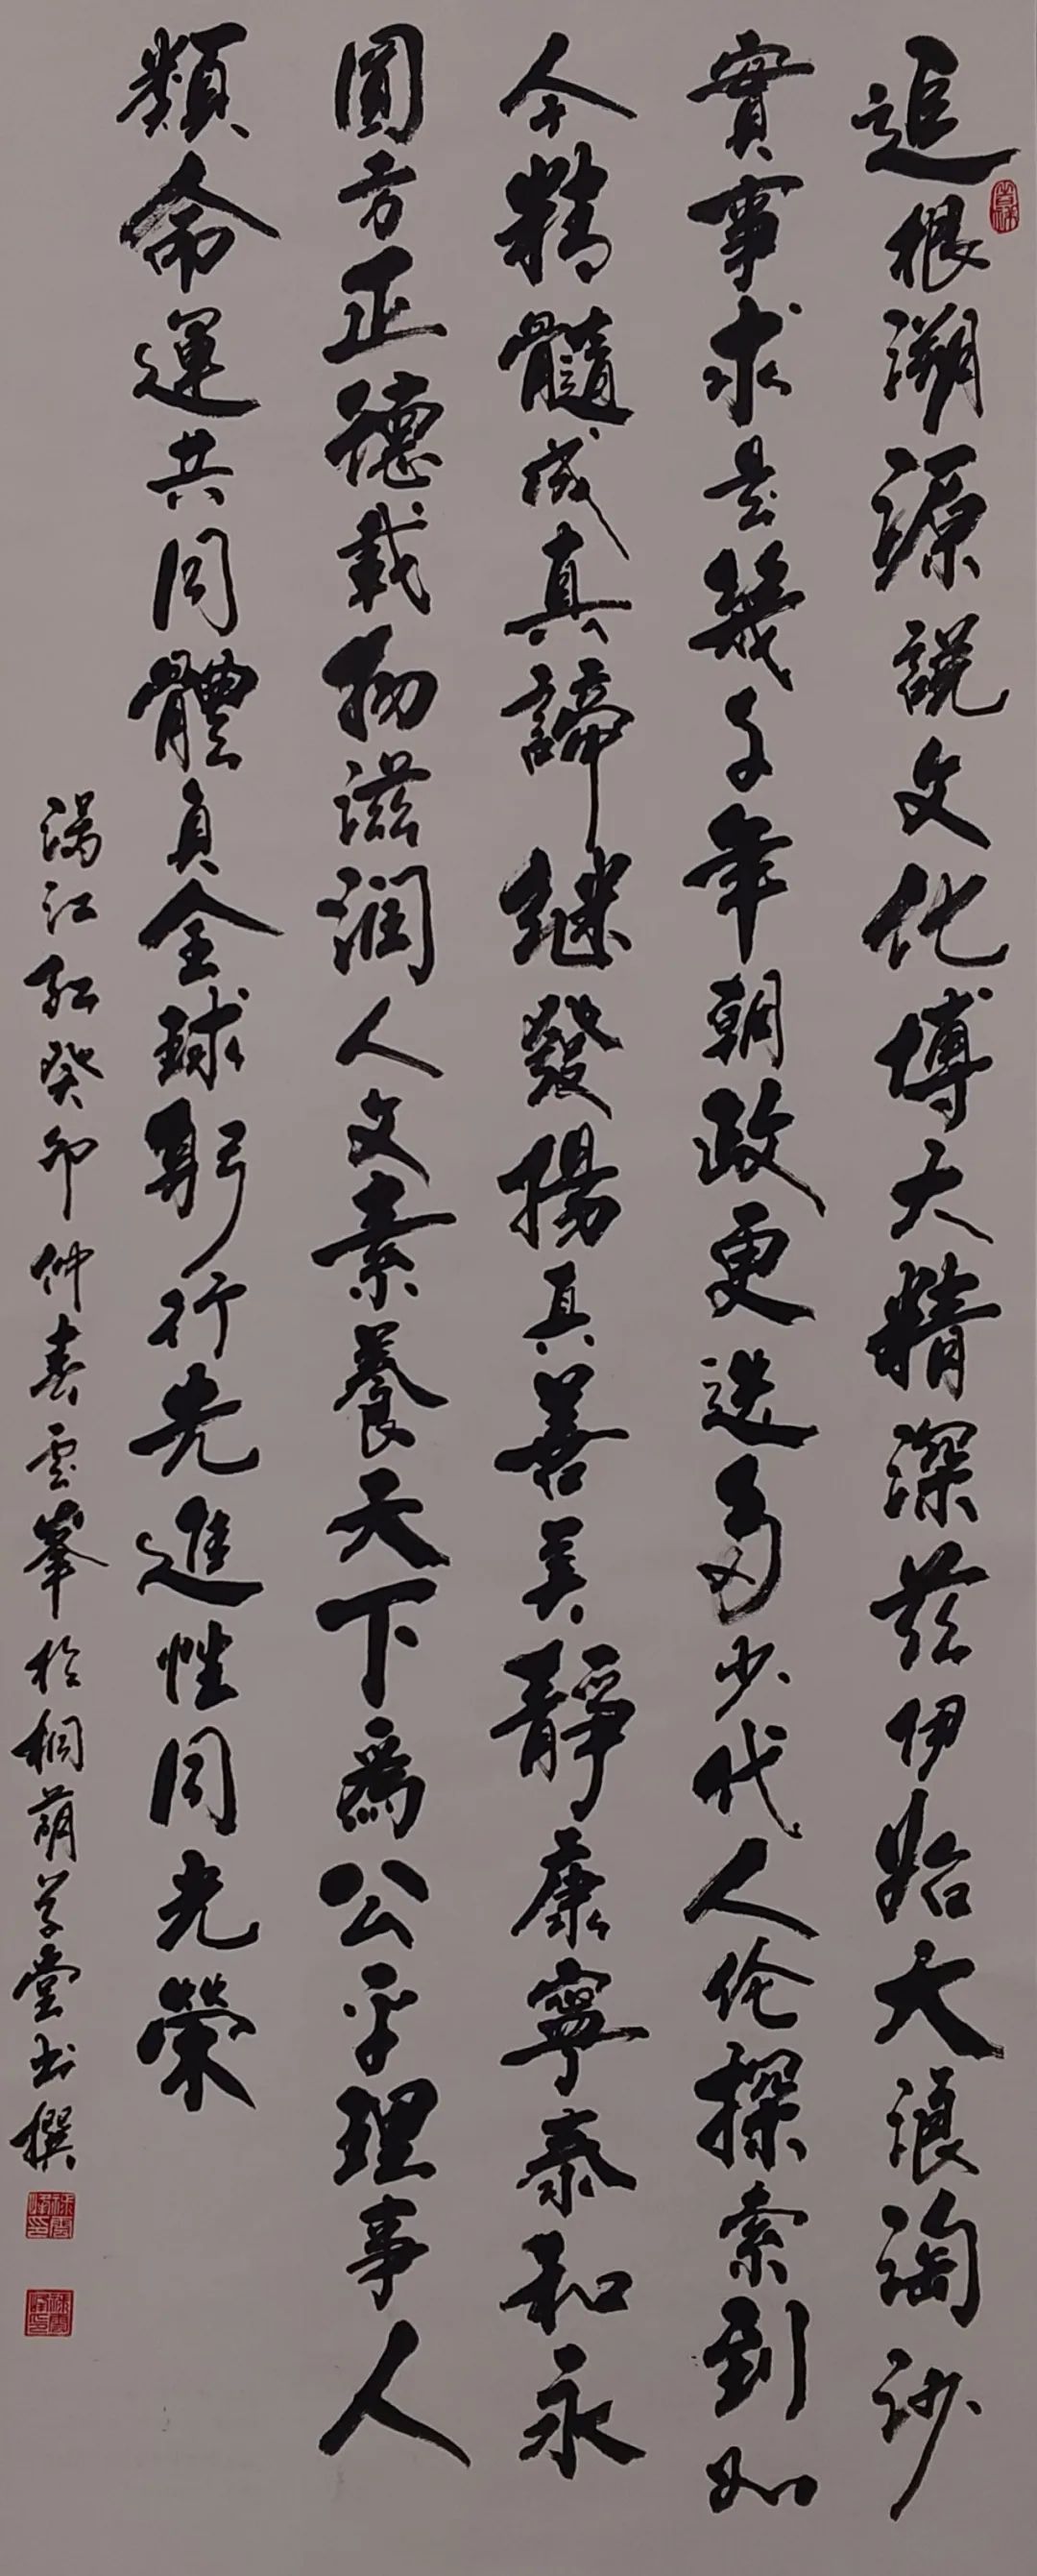 追根溯源説文化博大精深兹伊始大浪淘沙
實事求是幾千年朝政更迭多少代人伦探索到如
今精髓成真諦継發揚真善美靜康寧泰和永
圓方正德載物滋润人文素養天下為公平理事人
類命運共同體負全球躬行先進性同光榮
满江红癸卯仲春雲峯於桐蔭学堂书撰